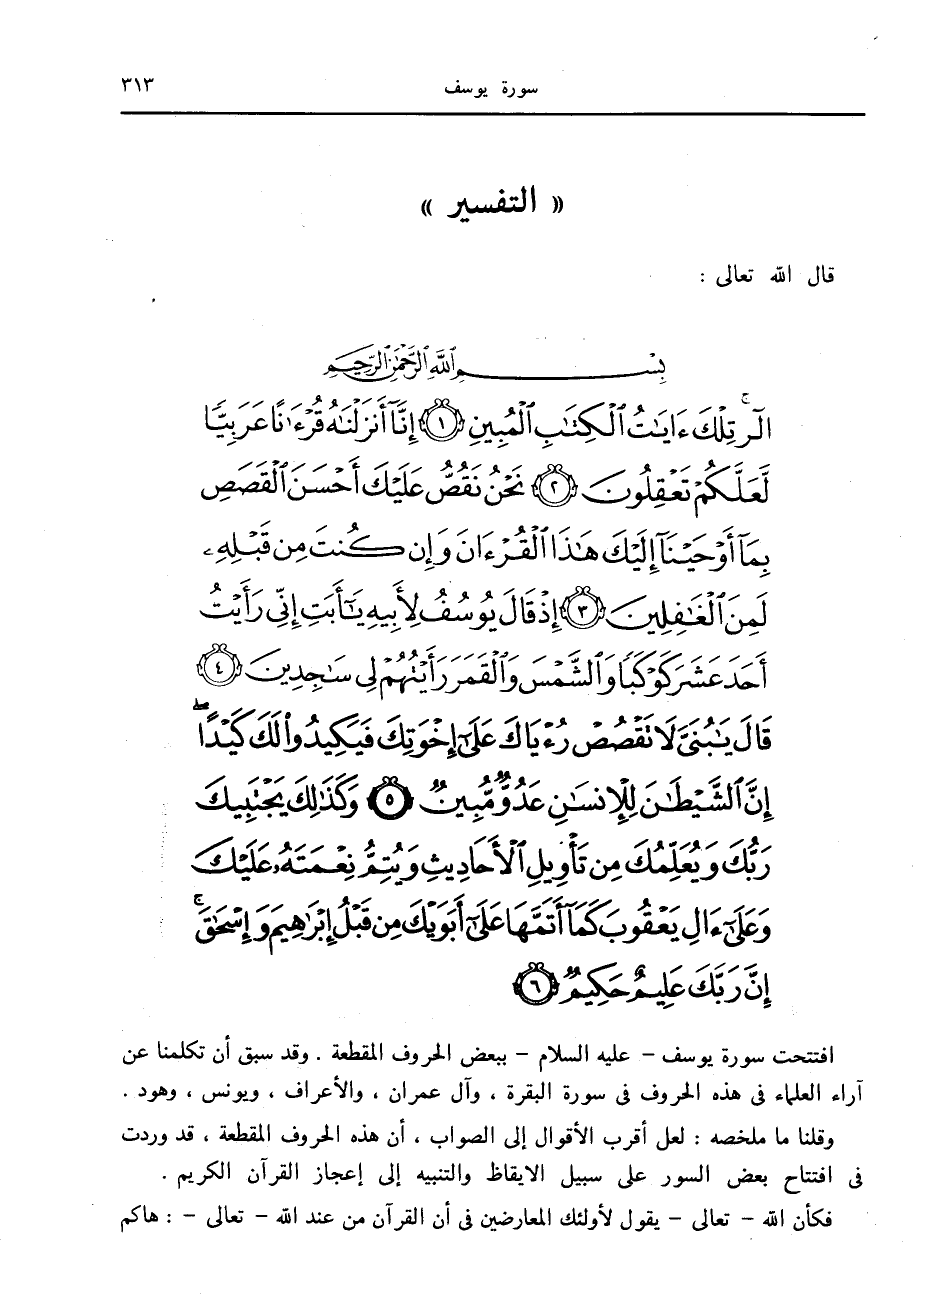 سورة يوسف ٣١٣
« التفسير »
قال الله تعالى :
بِسْمِ ٱللَّهِ ٱلرَّحْمَٰنِ ٱلرَّحِيمِ
الٓر ۚ تِلْكَ ءَايَٰتُ ٱلْكِتَٰبِ ٱلْمُبِينِ ١ إِنَّآ أَنزَلْنَٰهُ قُرْءَٰنًا عَرَبِيًّا
لَّعَلَّكُمْ تَعْقِلُونَ ٢ نَحْنُ نَقُصُّ عَلَيْكَ أَحْسَنَ ٱلْقَصَصِ
بِمَآ أَوْحَيْنَآ إِلَيْكَ هَٰذَا ٱلْقُرْءَانَ وَإِن كُنتَ مِن قَبْلِهِۦ
لَمِنَ ٱلْغَٰفِلِينَ ٣ إِذْ قَالَ يُوسُفُ لِأَبِيهِ يَٰٓأَبَتِ إِنِّى رَأَيْتُ
أَحَدَ عَشَرَ كَوْكَبًا وَٱلشَّمْسَ وَٱلْقَمَرَ رَأَيْتُهُمْ لِى سَٰجِدِينَ ٤
قَالَ يَٰبُنَىَّ لَا تَقْصُصْ رُءْيَاكَ عَلَىٰٓ إِخْوَتِكَ فَيَكِيدُوا۟ لَكَ كَيْدًا ۖ
إِنَّ ٱلشَّيْطَٰنَ لِلْإِنسَٰنِ عَدُوٌّ مُّبِينٌ ٥ وَكَذَٰلِكَ يَجْتَبِيكَ
رَبُّكَ وَيُعَلِّمُكَ مِن تَأْوِيلِ ٱلْأَحَادِيثِ وَيُتِمُّ نِعْمَتَهُۥ عَلَيْكَ
وَعَلَىٰٓ ءَالِ يَعْقُوبَ كَمَآ أَتَمَّهَا عَلَىٰٓ أَبَوَيْكَ مِن قَبْلُ إِبْرَٰهِيمَ وَإِسْحَٰقَ ۚ
إِنَّ رَبَّكَ عَلِيمٌ حَكِيمٌ ٦
افتتحت سورة يوسف – عليه السلام – ببعض الحروف المقطعة . وقد سبق أن تكلمنا عن
آراء العلماء فى هذه الحروف فى سورة البقرة ، وآل عمران ، والأعراف ، ويونس ، وهود .
وقلنا ما ملخصه : لعل أقرب الأقوال إلى الصواب ، أن هذه الحروف المقطعة ، قد وردت
فى افتتاح بعض السور على سبيل الايقاظ والتنبيه إلى إعجاز القرآن الكريم .
فكأن الله – تعالى – يقول لأولئك المعارضين فى أن القرآن من عند الله – تعالى – : هاكم